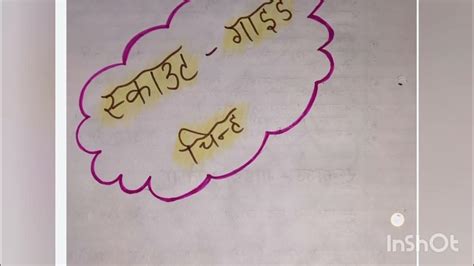 स्काउट - गाइड
चिन्ह
InShOt